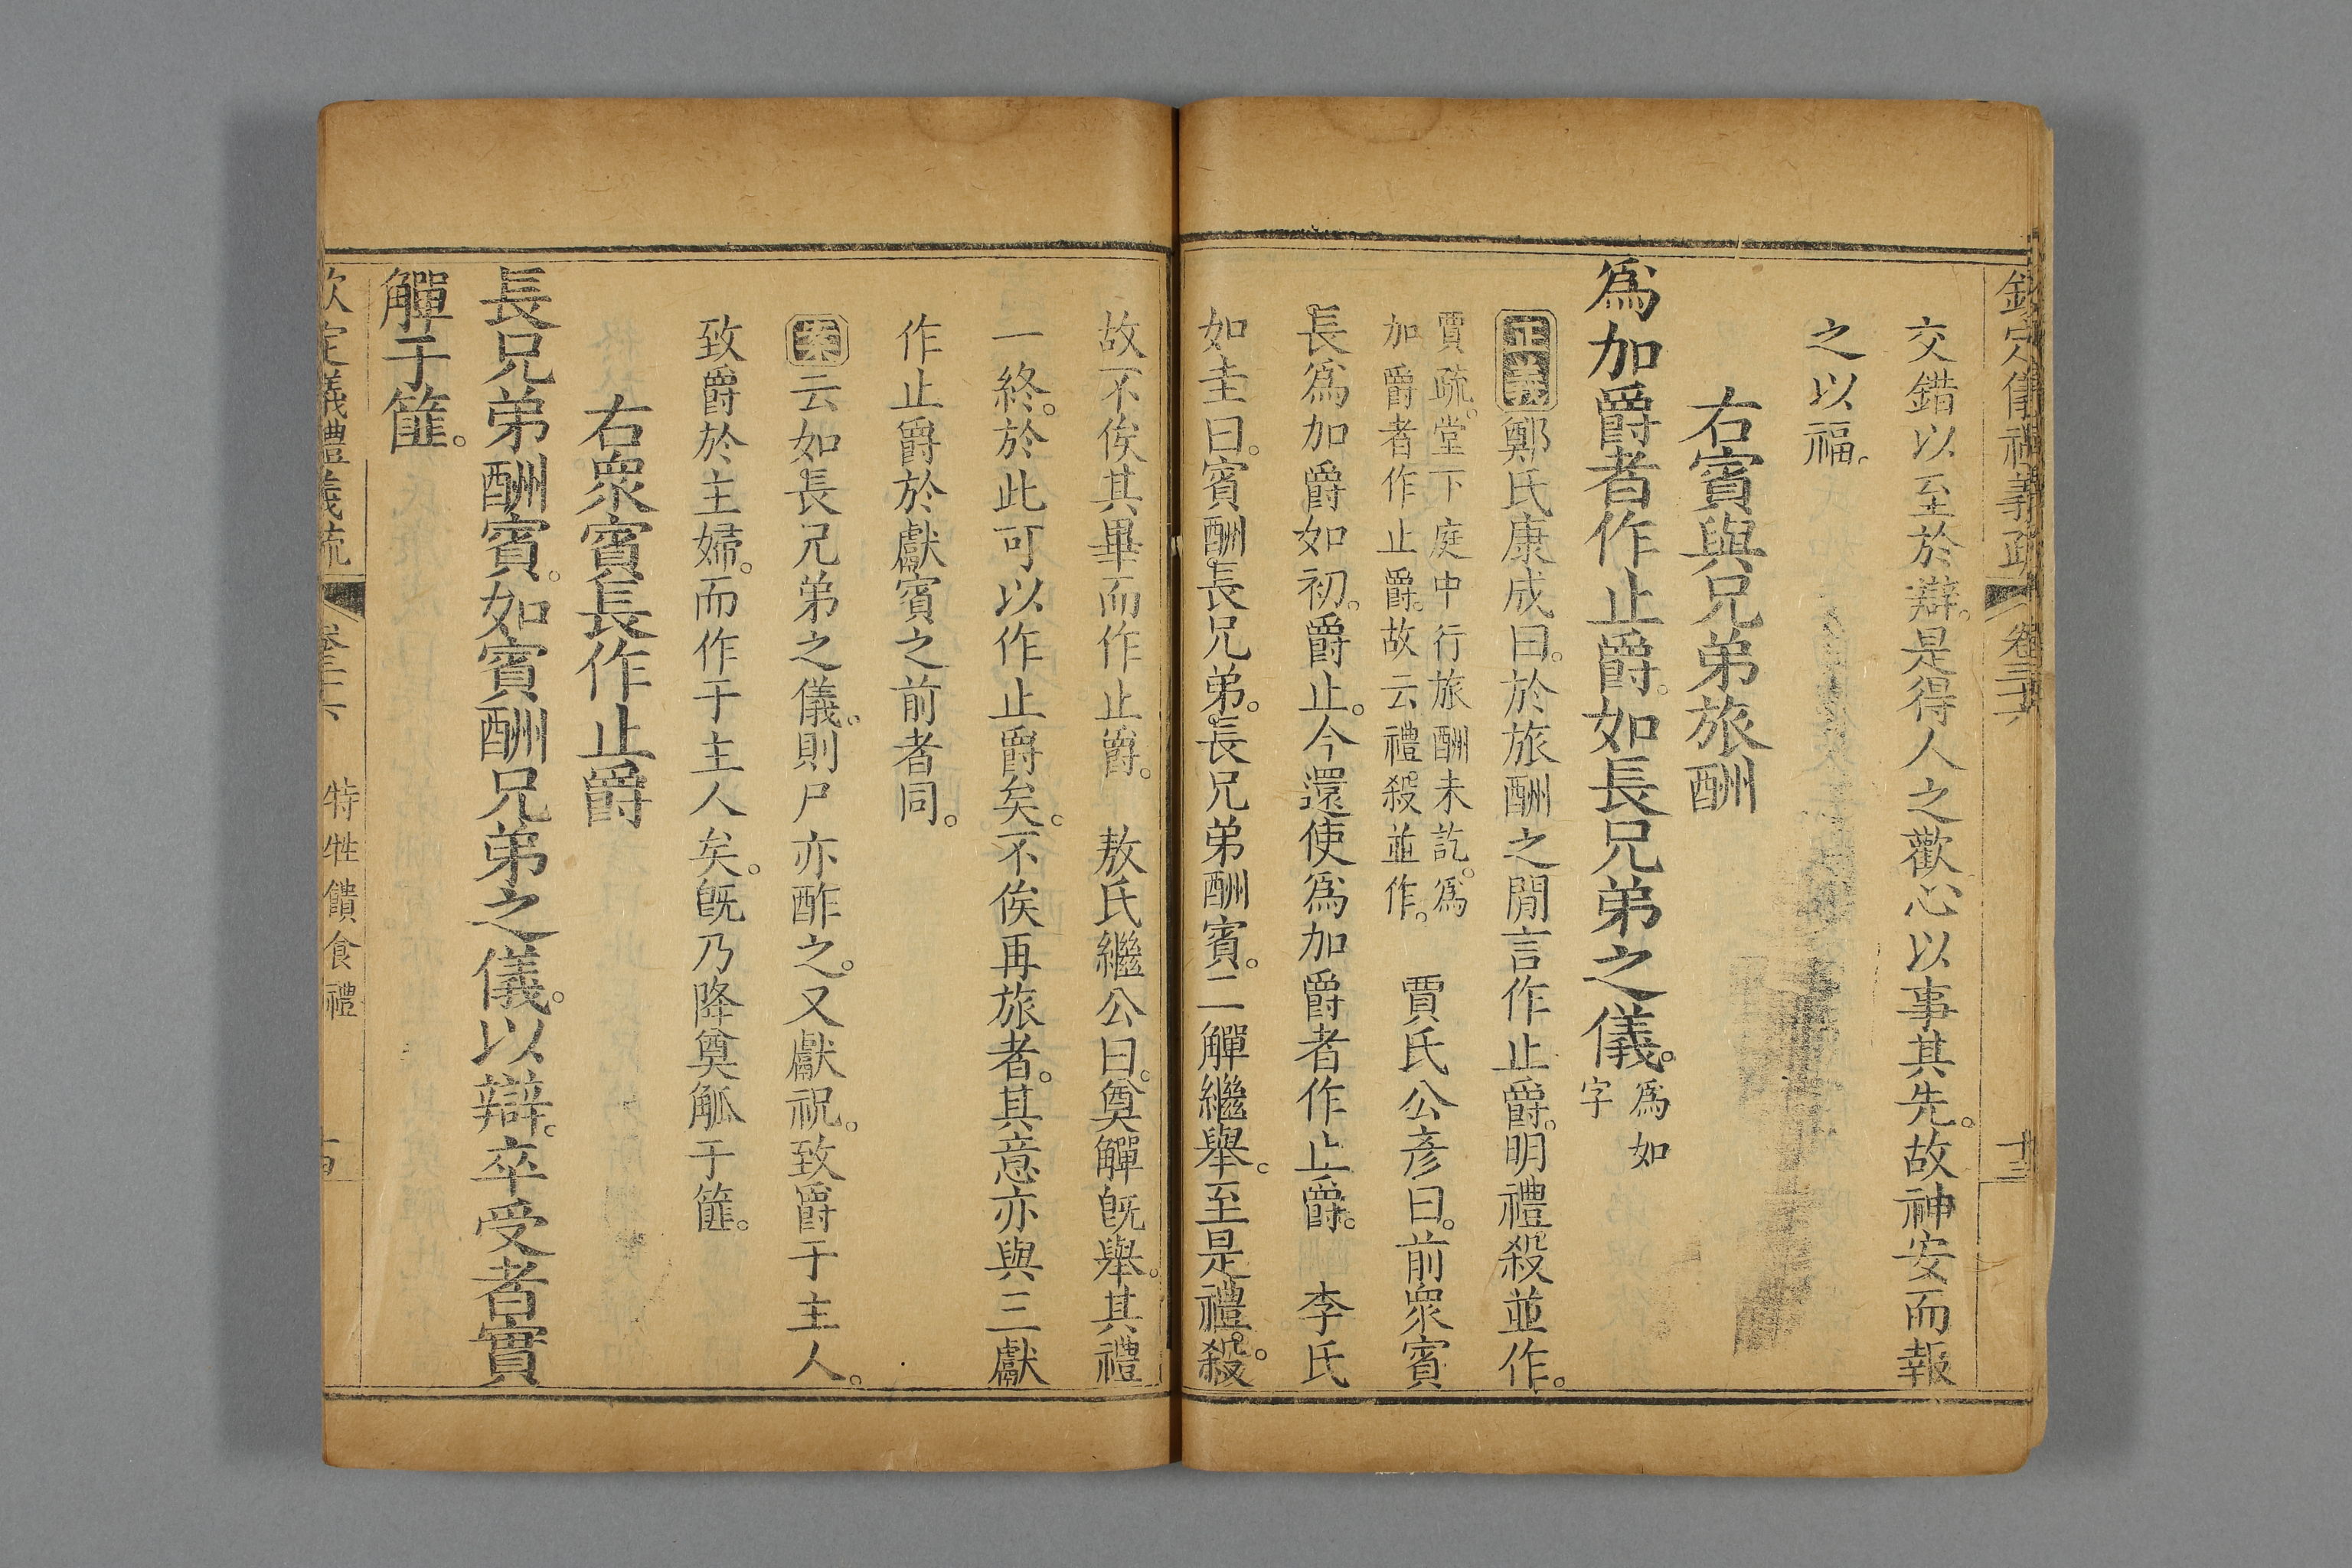 欽定儀禮義疏 卷三十六 十三
交錯以至於辯。是得人之歡心以事其先。故神安而報
之以福。
右賓與兄弟旅酬
爲加爵者作止爵。如長兄弟之儀。爲如字
正義鄭氏康成曰。於旅酬之閒言作止爵。明禮殺並作。
賈疏。堂下庭中行旅酬未訖。爲
加爵者作止爵。故云禮殺並作。 賈氏公彥曰。前衆賓
長爲加爵如初。爵止。今還使爲加爵者作止爵。 李氏
如圭曰。賓酬長兄弟。長兄弟酬賓。二觶繼舉。至是禮殺。
故不俟其畢而作止爵。 敖氏繼公曰。奠觶旣舉。其禮
一終。於此可以作止爵矣。不俟再旅者。其意亦與三獻
作止爵於獻賓之前者同。
案云如長兄弟之儀。則尸亦酢之。又獻祝。致爵于主人。
致爵於主婦。而作于主人矣。旣乃降奠觚于篚。
右衆賓長作止爵
長兄弟酬賓。如賓酬兄弟之儀。以辯。卒受者實
觶于篚。
欽定儀禮義疏 卷三十六 特牲饋食禮 十四